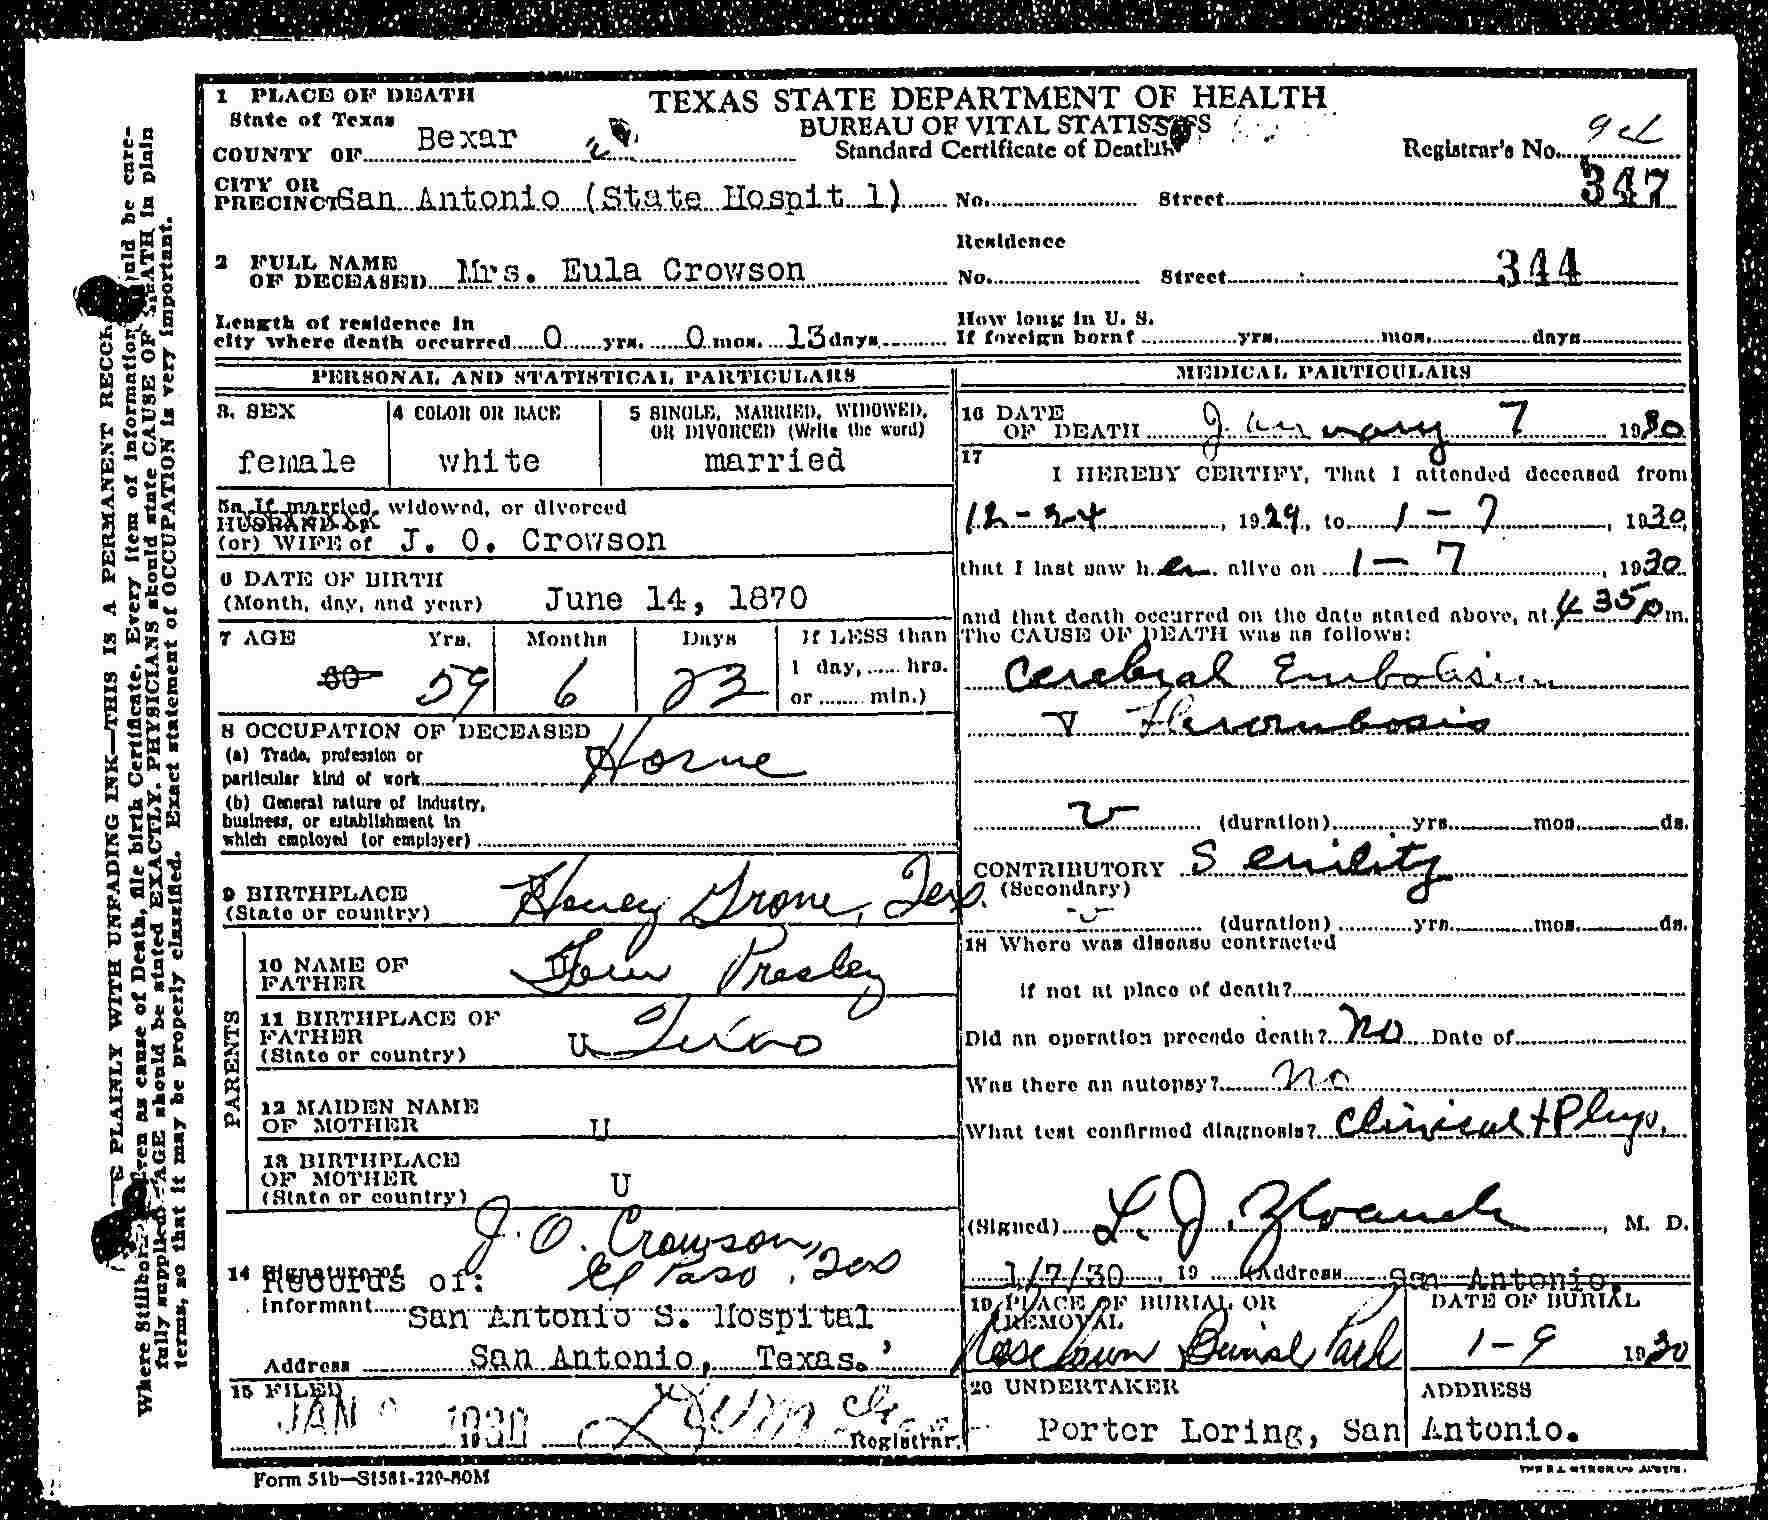 TEXAS STATE DEPARTMENT OF HEALTH
BUREAU OF VITAL STATISTICS
Standard Certificate of Death
1 PLACE OF DEATH
State of Texas
COUNTY OF Bexar
Registrar's No.
347
CITY OR
PRECINCT San Antonio (State Hospit l) No. Street
Residence
2 FULL NAME
OF DECEASED Mrs. Eula Crowson No. Street 344
Length of residence in
city where death occurred 0 yrs. 0 mos. 13 days
How long in U. S.
If foreign born? yrs. mos. days
PERSONAL AND STATISTICAL PARTICULARS
3. SEX
female
4 COLOR OR RACE
white
5 SINGLE, MARRIED, WIDOWED,
OR DIVORCED (Write the word)
married
5a If married, widowed, or divorced
HUSBAND of
(or) WIFE of J. O. Crowson
6 DATE OF BIRTH
(Month, day, and year) June 14, 1870
7 AGE Yrs. Months Days If LESS than
1 day, hrs.
or min.)
60 59 6 23
8 OCCUPATION OF DECEASED
(a) Trade, profession or
particular kind of work Home
(b) General nature of Industry,
business, or establishment in
which employed (or employer)
9 BIRTHPLACE
(State or country) Honey Grone, Tex.
PARENTS
10 NAME OF
FATHER Presley
11 BIRTHPLACE OF
FATHER
(State or country) U Texas
12 MAIDEN NAME
OF MOTHER U
13 BIRTHPLACE
OF MOTHER
(State or country) U
J. O. Crowson,
El Paso, Tex
14 Signature of
Records of:
Informant San Antonio S. Hospital
Address San Antonio, Texas.
15 FILED
JAN 1930
19
Registrar.
MEDICAL PARTICULARS
16 DATE
OF DEATH January 7 1930
17
I HEREBY CERTIFY, That I attended deceased from
12-24, 1929, to 1-7, 1930,
that I last saw her alive on 1-7, 1930
and that death occurred on the date stated above, at 4 35 p m.
The CAUSE OF DEATH was as follows:
Cerebral Embolism
Thrombosis
(duration) yrs. mos. ds.
CONTRIBUTORY Senility
(Secondary)
(duration) yrs. mos. ds.
18 Where was disease contracted
if not at place of death?
Did an operation precede death? No Date of
Was there an autopsy? No
What test confirmed diagnosis? Clinical + Phys.
(Signed) L. J. M. D.
1/7/30, 19 (Address San Antonio.
19 PLACE OF BURIAL OR
REMOVAL
Rose Lawn Burial Park
DATE OF BURIAL
1-9 1930
20 UNDERTAKER ADDRESS
Porter Loring, San Antonio.
Form 51b—S1581-229-80M
E PLAINLY WITH UNFADING INK—THIS IS A PERMANENT RECO
Every item of information uld be care-
fully supplied. AGE should be stated EXACTLY. PHYSICIANS should state CAUSE OF DEATH in plain
terms, so that it may be properly classified. Exact statement of OCCUPATION is very important.
Where Stillbor ven as cause of Death, file birth Certificate.